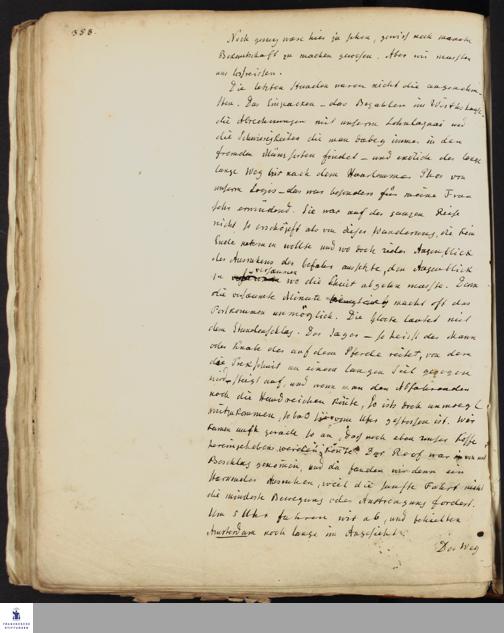 388.
Noch genug wäre hier zu sehen, gewiß noch manche
Bekanntschaft zu machen gewesen. Aber wir mussten
uns losreissen.
Die letzten Stunden waren nicht die angenehm-
sten. Das Einpacken – das Bezahlen im
die Abrechnungen mit unserm Lohnlaquai und
die Schwierigkeiten die man dabey immer in den
fremden Münzsorten findet – und endlich der lange
lange Weg bis nach dem Haarlemmer Thor von
unserm Logis – das war besonders für meine Frau
sehr ermüdend. Sie war auf der ganzen Reise
nicht so erschöpft als von dieser Wanderung, die kein
Ende nehmen wollte und wo doch jeder Augenblick
des Ausruhens der Gefahr aussetzte, den Augenblick
zu versäumen wo die Schuit abgehen musste. Denn
die versäumte Minute macht oft das
Fortkommen unmöglich. Die Glocke lautet mit
dem Stundenschlag. Der Jager – so heisst der Mann
oder Knabe der auf dem Pferde reitet, von dem
die Trekschuit an einem langen Seil gezogen
wird – steigt auf, und wenn man den Abfahrenden
noch die Hand reichen könte, so ists doch unmögl.
mitzukommen, so bald sie vom Ufer gestossen ist. Wir
kamen auch gerade so an, daß noch eben unser Koffer
hereingehoben werden konte. Der Roof war von uns in
Beschlag genommen, und da fanden wir denn ein
Ausruhen, weil die sanfte Fahrt nicht
die mindeste Bewegung oder Anstrengung fordert.
Um 5 Uhr fuhren wir ab, und behielten
Amsterdam noch lange im Angesicht.
Der Weg
FRANCKESCHE
STIFTUNGEN